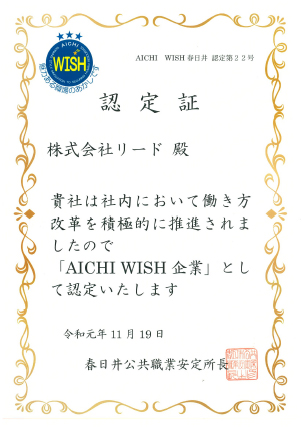 AICHI
WISH
AICHI WISH春日井 認定第22号
認定証
株式会社リード 殿
貴社は社内において働き方
改革を積極的に推進されま
したので
「AICHI WISH企業」とし
て認定いたします
令和元年11月19日
春日井公共職業安定所長